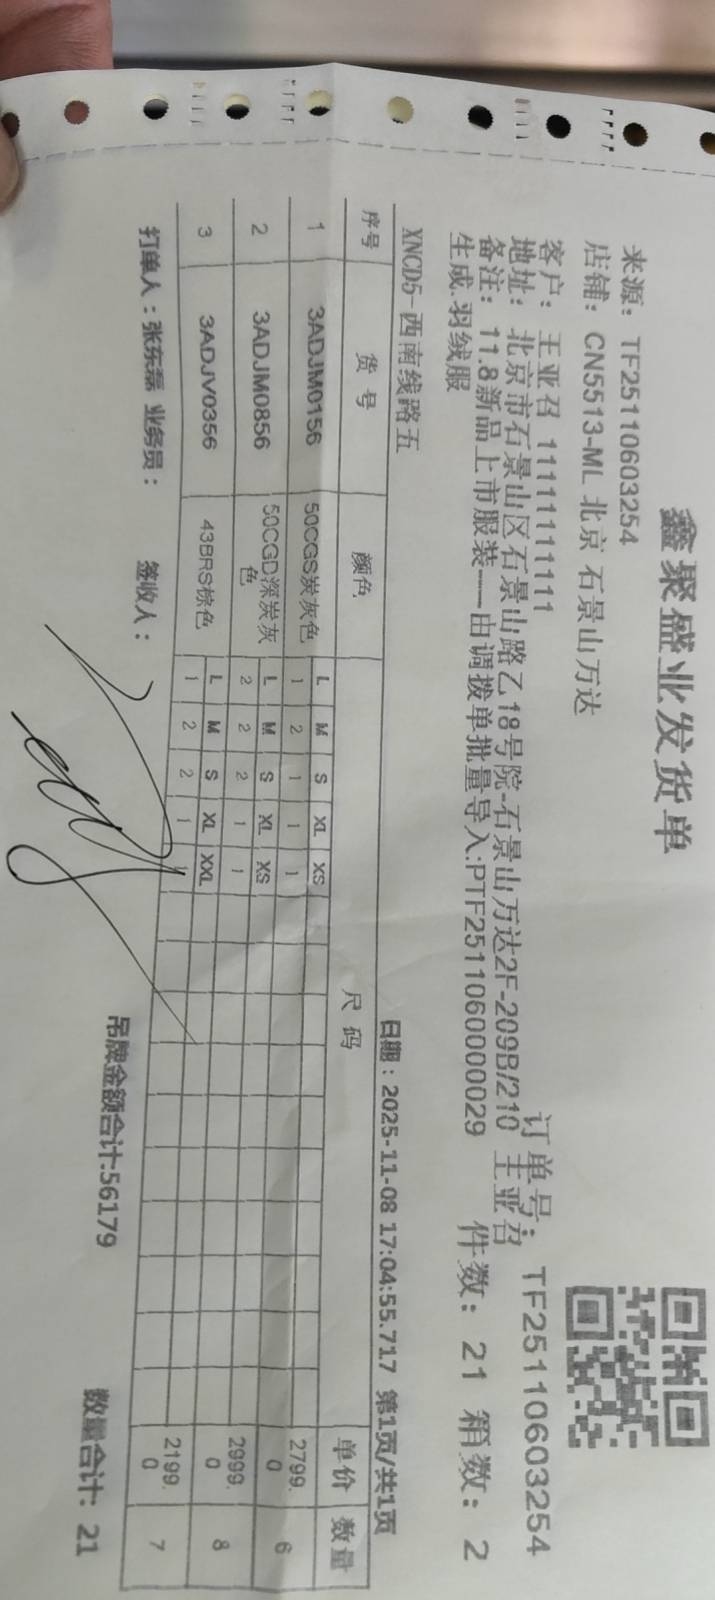 鑫聚盛业发货单
来源：TF25110603254
订单号：TF25110603254
店铺：CN5513-ML 北京石景山万达
客户：王亚召 11111111111
地址：北京市石景山区石景山路乙18号院-石景山万达2F-209B/210 王亚召
件数：21 箱数：2
备注：11.8新品上市服装——由调拨单批量导入:PTF2511060000029
生成.羽绒服
XNCD5-西南线路五 日期：2025-11-08 17:04:55.717 第1页/共1页
序号 货号 颜色 尺码 单价 数量
L M S XL XS
1 3ADJM0156 50CGS炭灰色 1 2 1 1 1 2799.0 6
L M S XL XS
2 3ADJM0856 50CGD深炭灰色 2 2 2 1 1 2999.0 8
L M S XL XXL
3 3ADJV0356 43BRS棕色 1 2 2 1 1 2199.0 7
打单人：张东磊 业务员： 签收人： 吊牌金额合计:56179 数量合计: 21